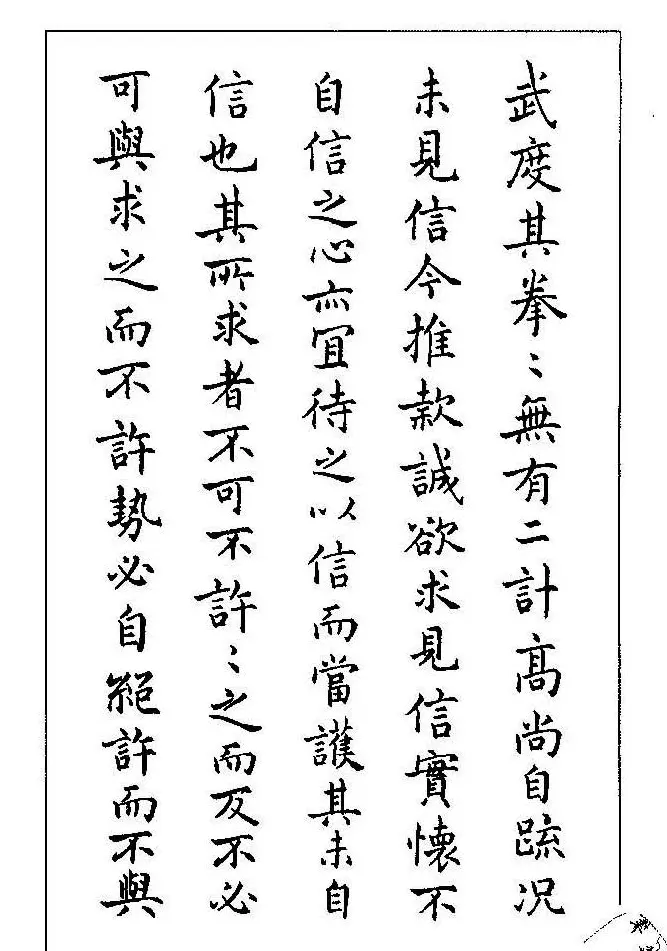 武度其拳〻無有二計高尚自疏况
未見信今推款誠欲求見信實懷不
自信之心亦宜待之以信而當護其未自
信也其所求者不可不許〻之而反不必
可與求之而不許勢必自絕許而不與